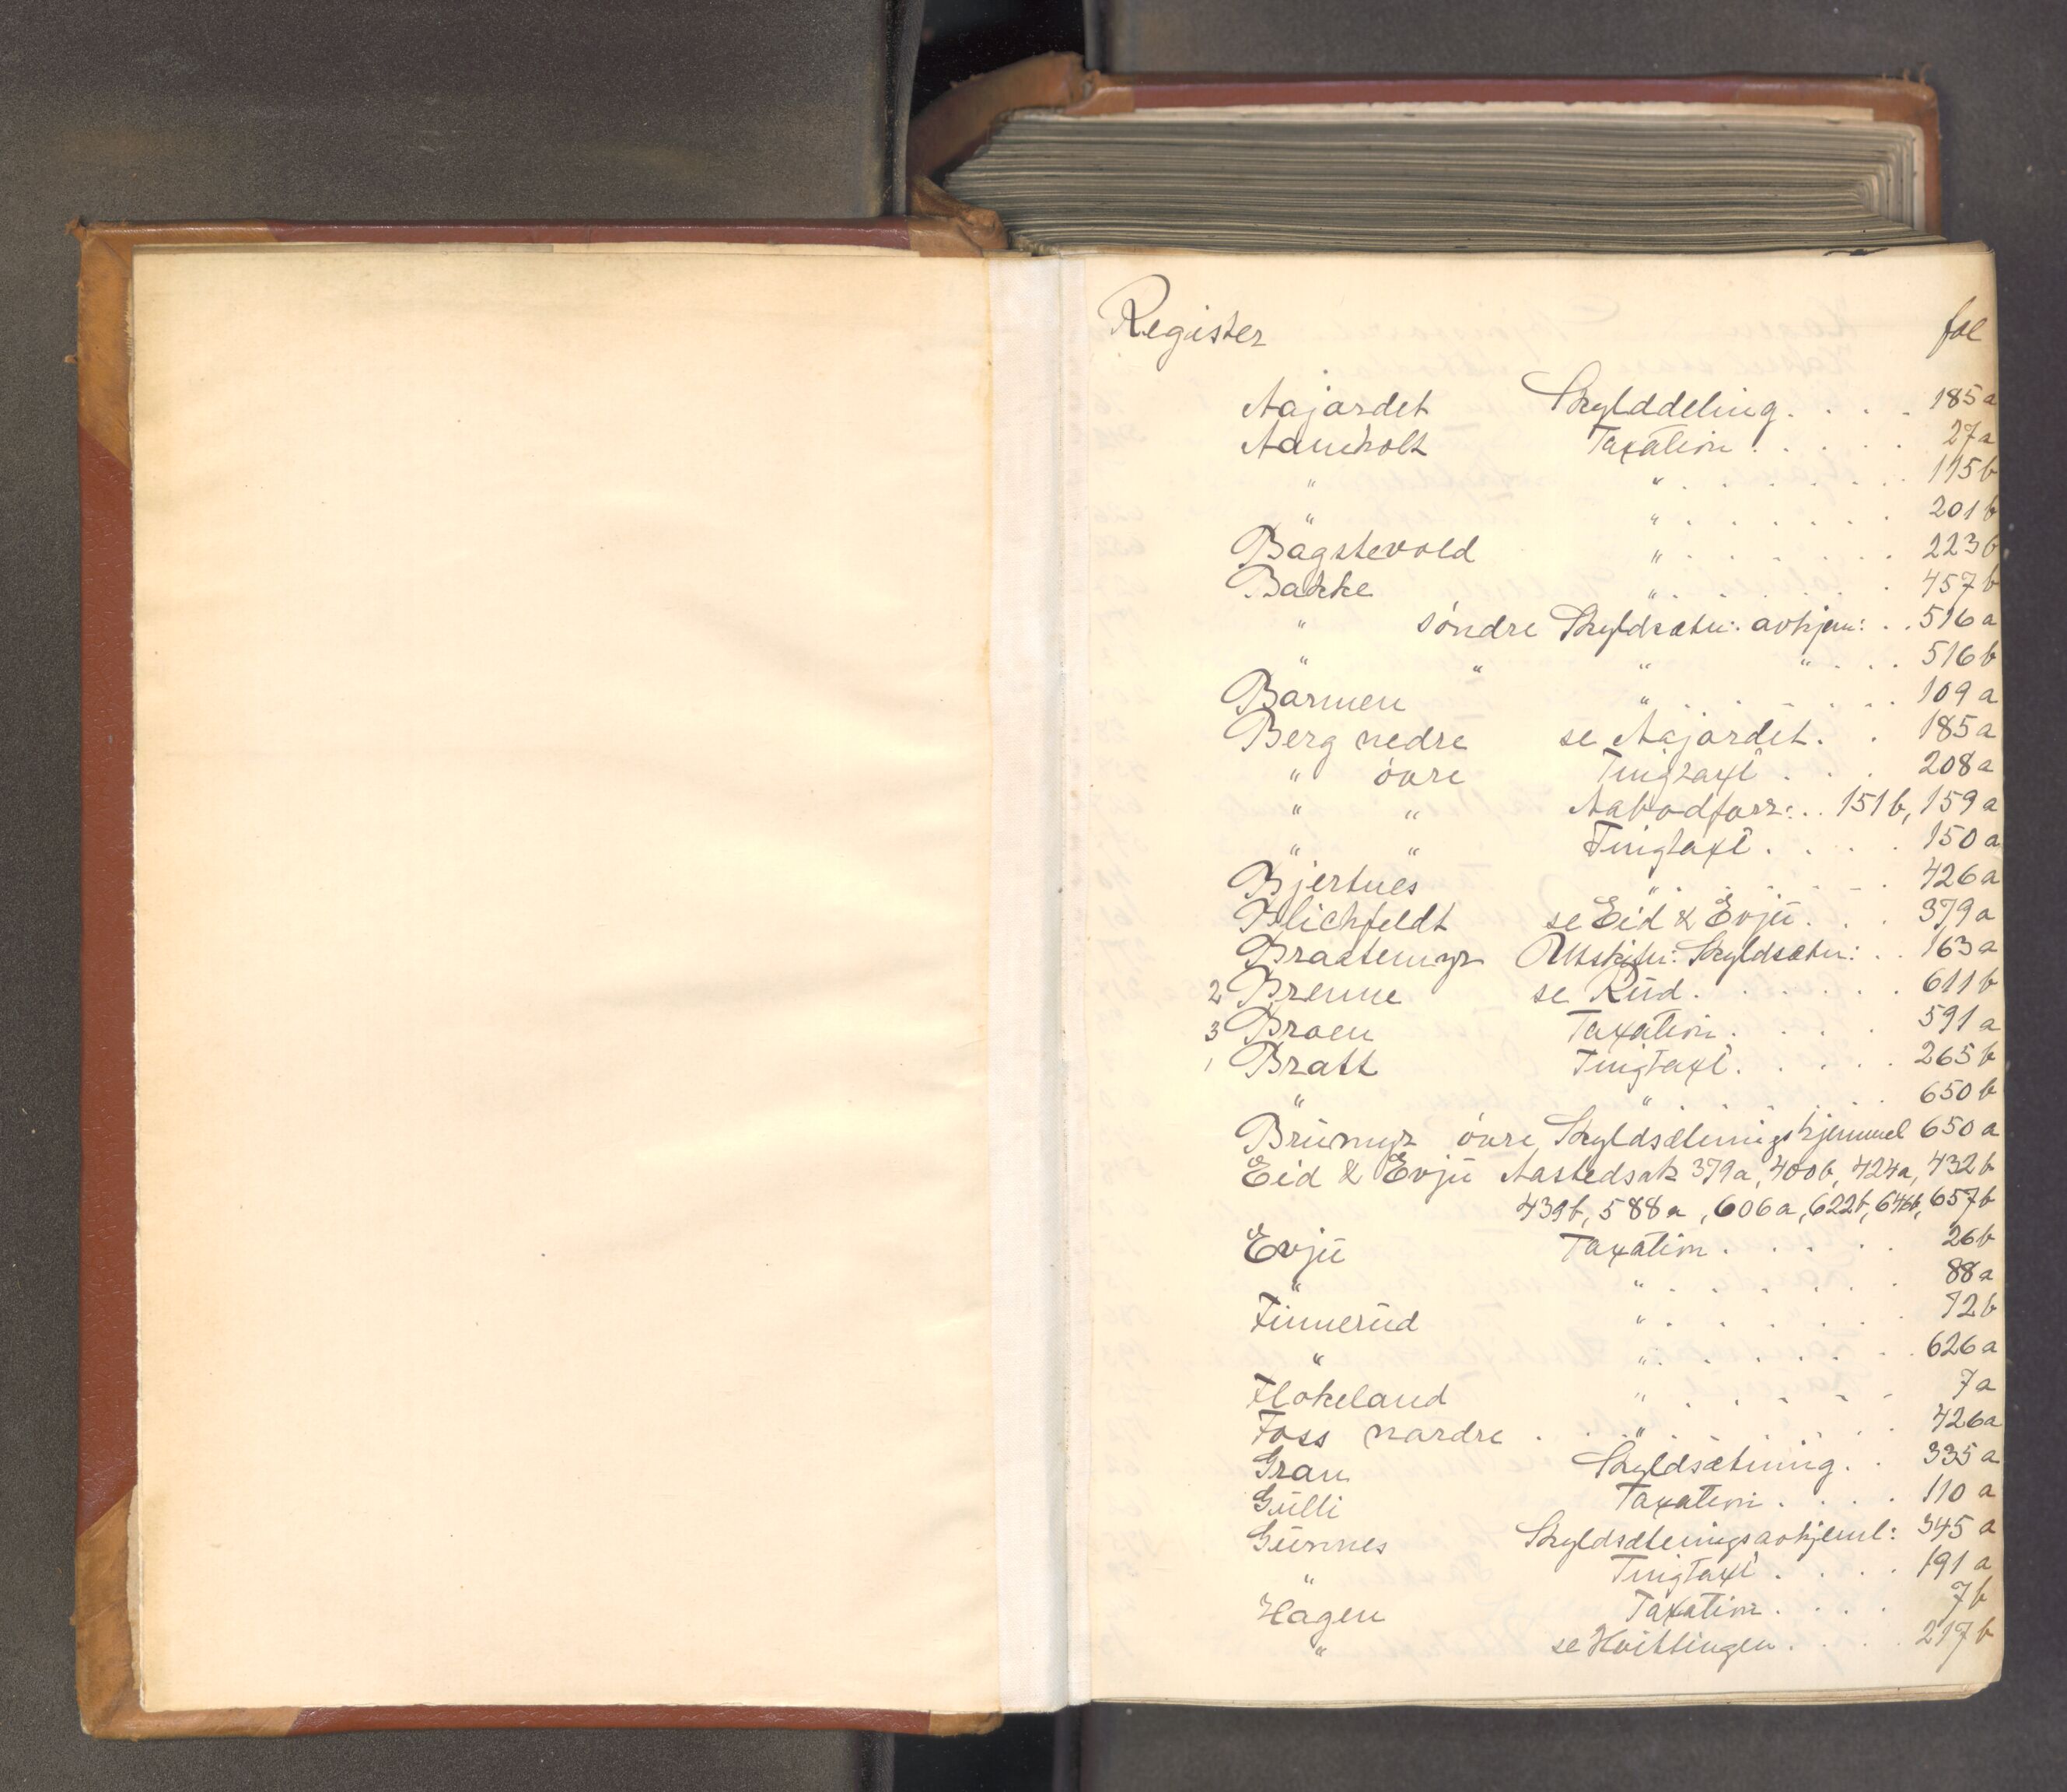 Register fol
Aajordet Skylddeling. . . . 185a
Aamholt Taxation. . . . . 27a
" " . . . . . . 115b
" " . . . . . . 201b
Bagstevold " . . . . . . 223b
Bakke " . . . . . . 457b
" søndre Skyldsætn: avhjem: . . 516a
" " " " . . . 516b
Barmen " . . . . . . 109a
Berg nedre se Aajordet. . 185a
" øvre Tingtaxt . . . 208a
" " Aabodforr: . . 151b, 159a
" " Tingtaxt. . . . . 150a
Bjertnes " . . . . . . 426a
Blichfeldt se Eid & Evju. . . 379a
Braatemyr Utskiftn: Skyldsætn: . . 163a
2 Brenne se Rud. . . . . . . 611b
3 Broen Taxation. . . . . 591a
1 Bratt Tingtaxt. . . . . 265b
" " . . . . . . 650b
Brumyr øvre Skyldsætningshjemmel 650a
Eid & Evju Aastedsak 379a, 400b, 424a, 432b
439b, 588a, 606a, 622b, 646b, 657b
Evju Taxation. . . . . 26b
" " . . . . . . 88a
Finnerud " . . . . . . 12b
" " . . . . . . 626a
Flokeland " . . . . . . 7a
Foss nordre . . " . . . . 426a
Gran Skyldsætning. . 335a
Gulli Taxation. . . . 110a
Gunnes Skyldsætningsavhjeml: 345a
" Tingtaxt . . . . 191a
Hagen Taxation. . . . 7b
" se Hvittingen. . . . 217b